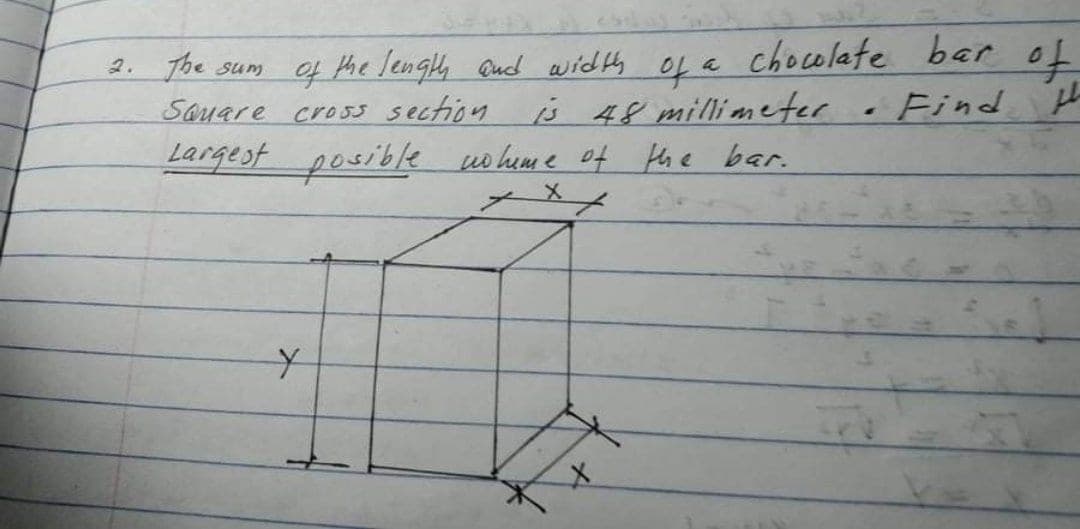 2. The sum of the length and width of a chocolate bar of
Square cross section is 48 millimeter. Find
Largest posible volume of the bar.
X
Y
X